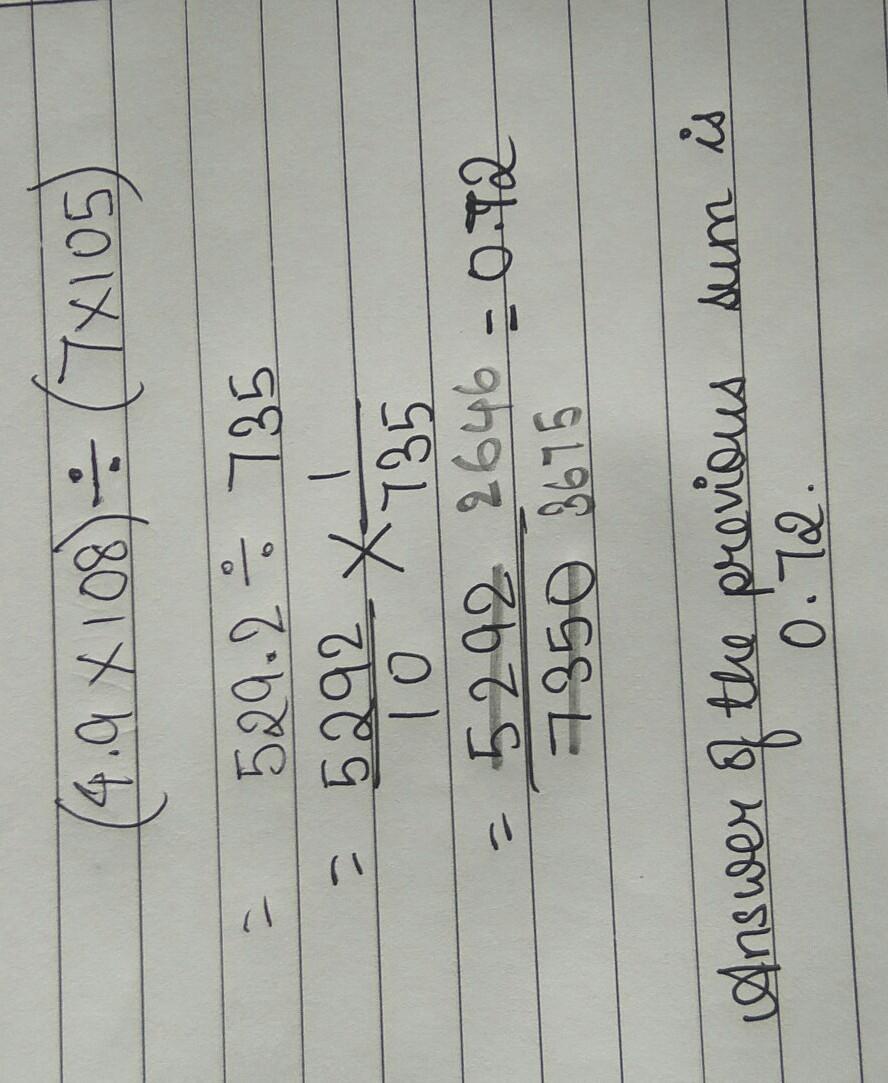 (4.9 × 108) ÷ (7×105)
= 529.2 ÷ 735
= 5292/10 × 1/735
= 5292/7350 2646/3675 = 0.72
Answer of the previous sum is
0.72.